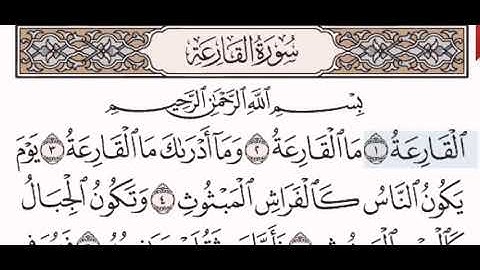 سُورَةُ ٱلْقَارِعَةِ
بِسْمِ ٱللَّهِ ٱلرَّحْمَٰنِ ٱلرَّحِيمِ
ٱلْقَارِعَةُ ١ مَا ٱلْقَارِعَةُ ٢ وَمَآ أَدْرَىٰكَ مَا ٱلْقَارِعَةُ ٣ يَوْمَ
يَكُونُ ٱلنَّاسُ كَٱلْفَرَاشِ ٱلْمَبْثُوثِ ٤ وَتَكُونُ ٱلْجِبَالُ